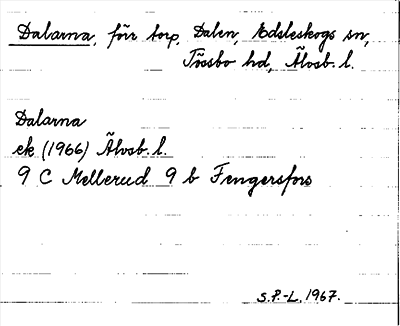 Dalarna, förr torp, Dalen, Edsleskogs sn,
Tössbo hd, Älvsb. l.
Dalarna
ek (1966) Älvsb. l.
9 C Mellerud 9 b Fengersfors
S.P.-L. 1967.